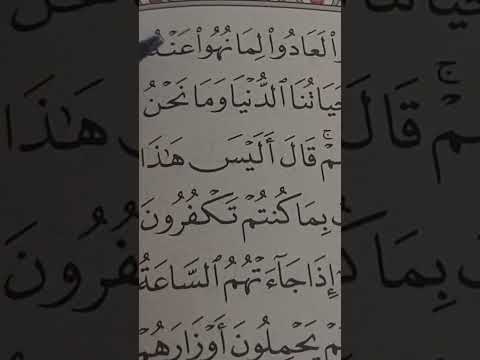 لَعَادُوا۟ لِمَا نُهُوا۟ عَنْهُ
حَيَاتُنَا ٱلدُّنْيَا وَمَا نَحْنُ
قَالَ أَلَيْسَ هَٰذَا
بِمَا كُنتُمْ تَكْفُرُونَ
إِذَا جَآءَتْهُمُ ٱلسَّاعَةُ
يَحْمِلُونَ أَوْزَارَهُمْ